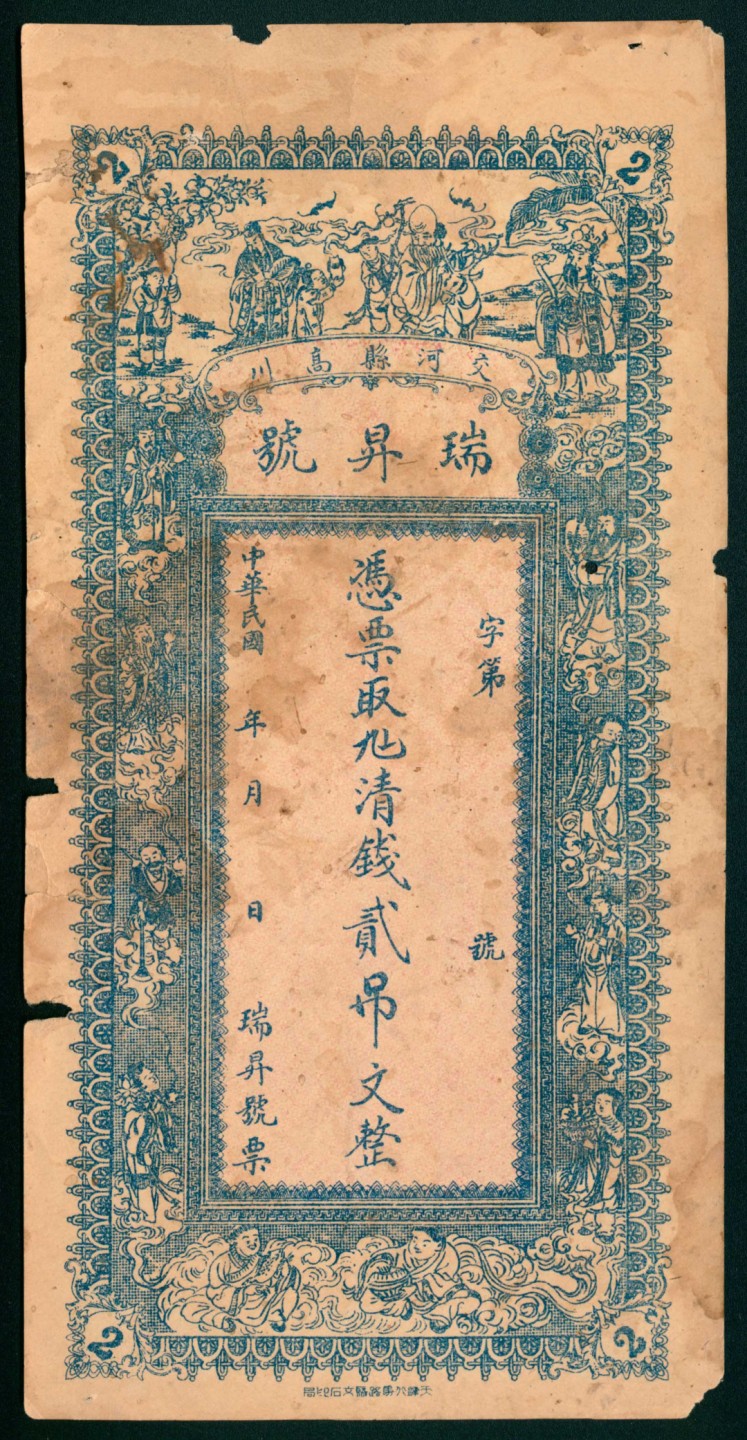 2 2
交河縣高川
瑞昇號
字第 號
憑票取九清錢貳吊文整
中華民國 年 月 日 瑞昇號票
2 2
天津 路 文石印局